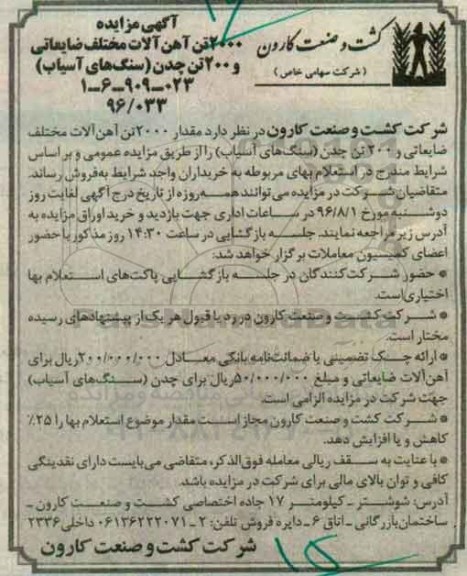 آگهی مزایده
۲۰۰۰تن آهن آلات مختلف ضایعاتی
و ۲۰۰تن چدن (سنگ‌های آسیاب)
۱-۶-۹۰۹-۰۲۳
۹۶/۰۳۳
کشت و صنعت کارون
(شرکت سهامی خاص)
شرکت کشت و صنعت کارون در نظر دارد مقدار ۲۰۰۰تن آهن‌آلات مختلف
ضایعاتی و ۲۰۰ تن چدن (سنگ‌های آسیاب) را از طریق مزایده عمومی و بر اساس
شرایط مندرج در استعلام بهای مربوطه به خریداران واجد شرایط به‌فروش رساند.
متقاضیان شرکت در مزایده می‌توانند همه‌روزه از تاریخ درج آگهی لغایت روز
دوشنبه مورخ ۹۶/۸/۱ در ساعات اداری جهت بازدید و خرید اوراق مزایده به
آدرس زیر مراجعه نمایند. جلسه بازگشایی در ساعت ۱۴:۳۰ روز مذکور با حضور
اعضای کمیسیون معاملات برگزار خواهد شد:
* حضور شرکت‌کنندگان در جلسه بازگشایی پاکت‌های استعلام بها
اختیاری‌است.
* شرکت کشت و صنعت کارون در رد یا قبول هر یک از پیشنهادهای رسیده
مختار است.
* ارائه چک تضمینی یا ضمانت‌نامه بانکی معادل ۲۰۰/۰۰۰/۰۰۰ریال برای
آهن‌آلات ضایعاتی و مبلغ ۵۰/۰۰۰/۰۰۰ریال برای چدن (سنگ‌های آسیاب)
جهت شرکت در مزایده الزامی است.
* شرکت کشت و صنعت کارون مجاز است مقدار موضوع استعلام بها را ۲۵٪
کاهش و یا افزایش دهد.
* با عنایت به سقف ریالی معامله فوق‌الذکر، متقاضی می‌بایست دارای نقدینگی
کافی و توان بالای مالی برای شرکت در مزایده باشد.
آدرس: شوشتر - کیلومتر ۱۷ جاده اختصاصی کشت و صنعت کارون -
ساختمان بازرگانی - اتاق ۶ - دایره فروش تلفن: ۲-۰۶۱۳۶۲۲۲۰۷۱ داخلی ۲۳۳۶
شرکت کشت و صنعت کارون